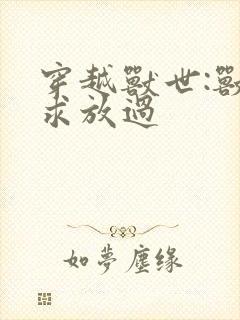 穿越獸世:獸
求放過
如夢塵缘